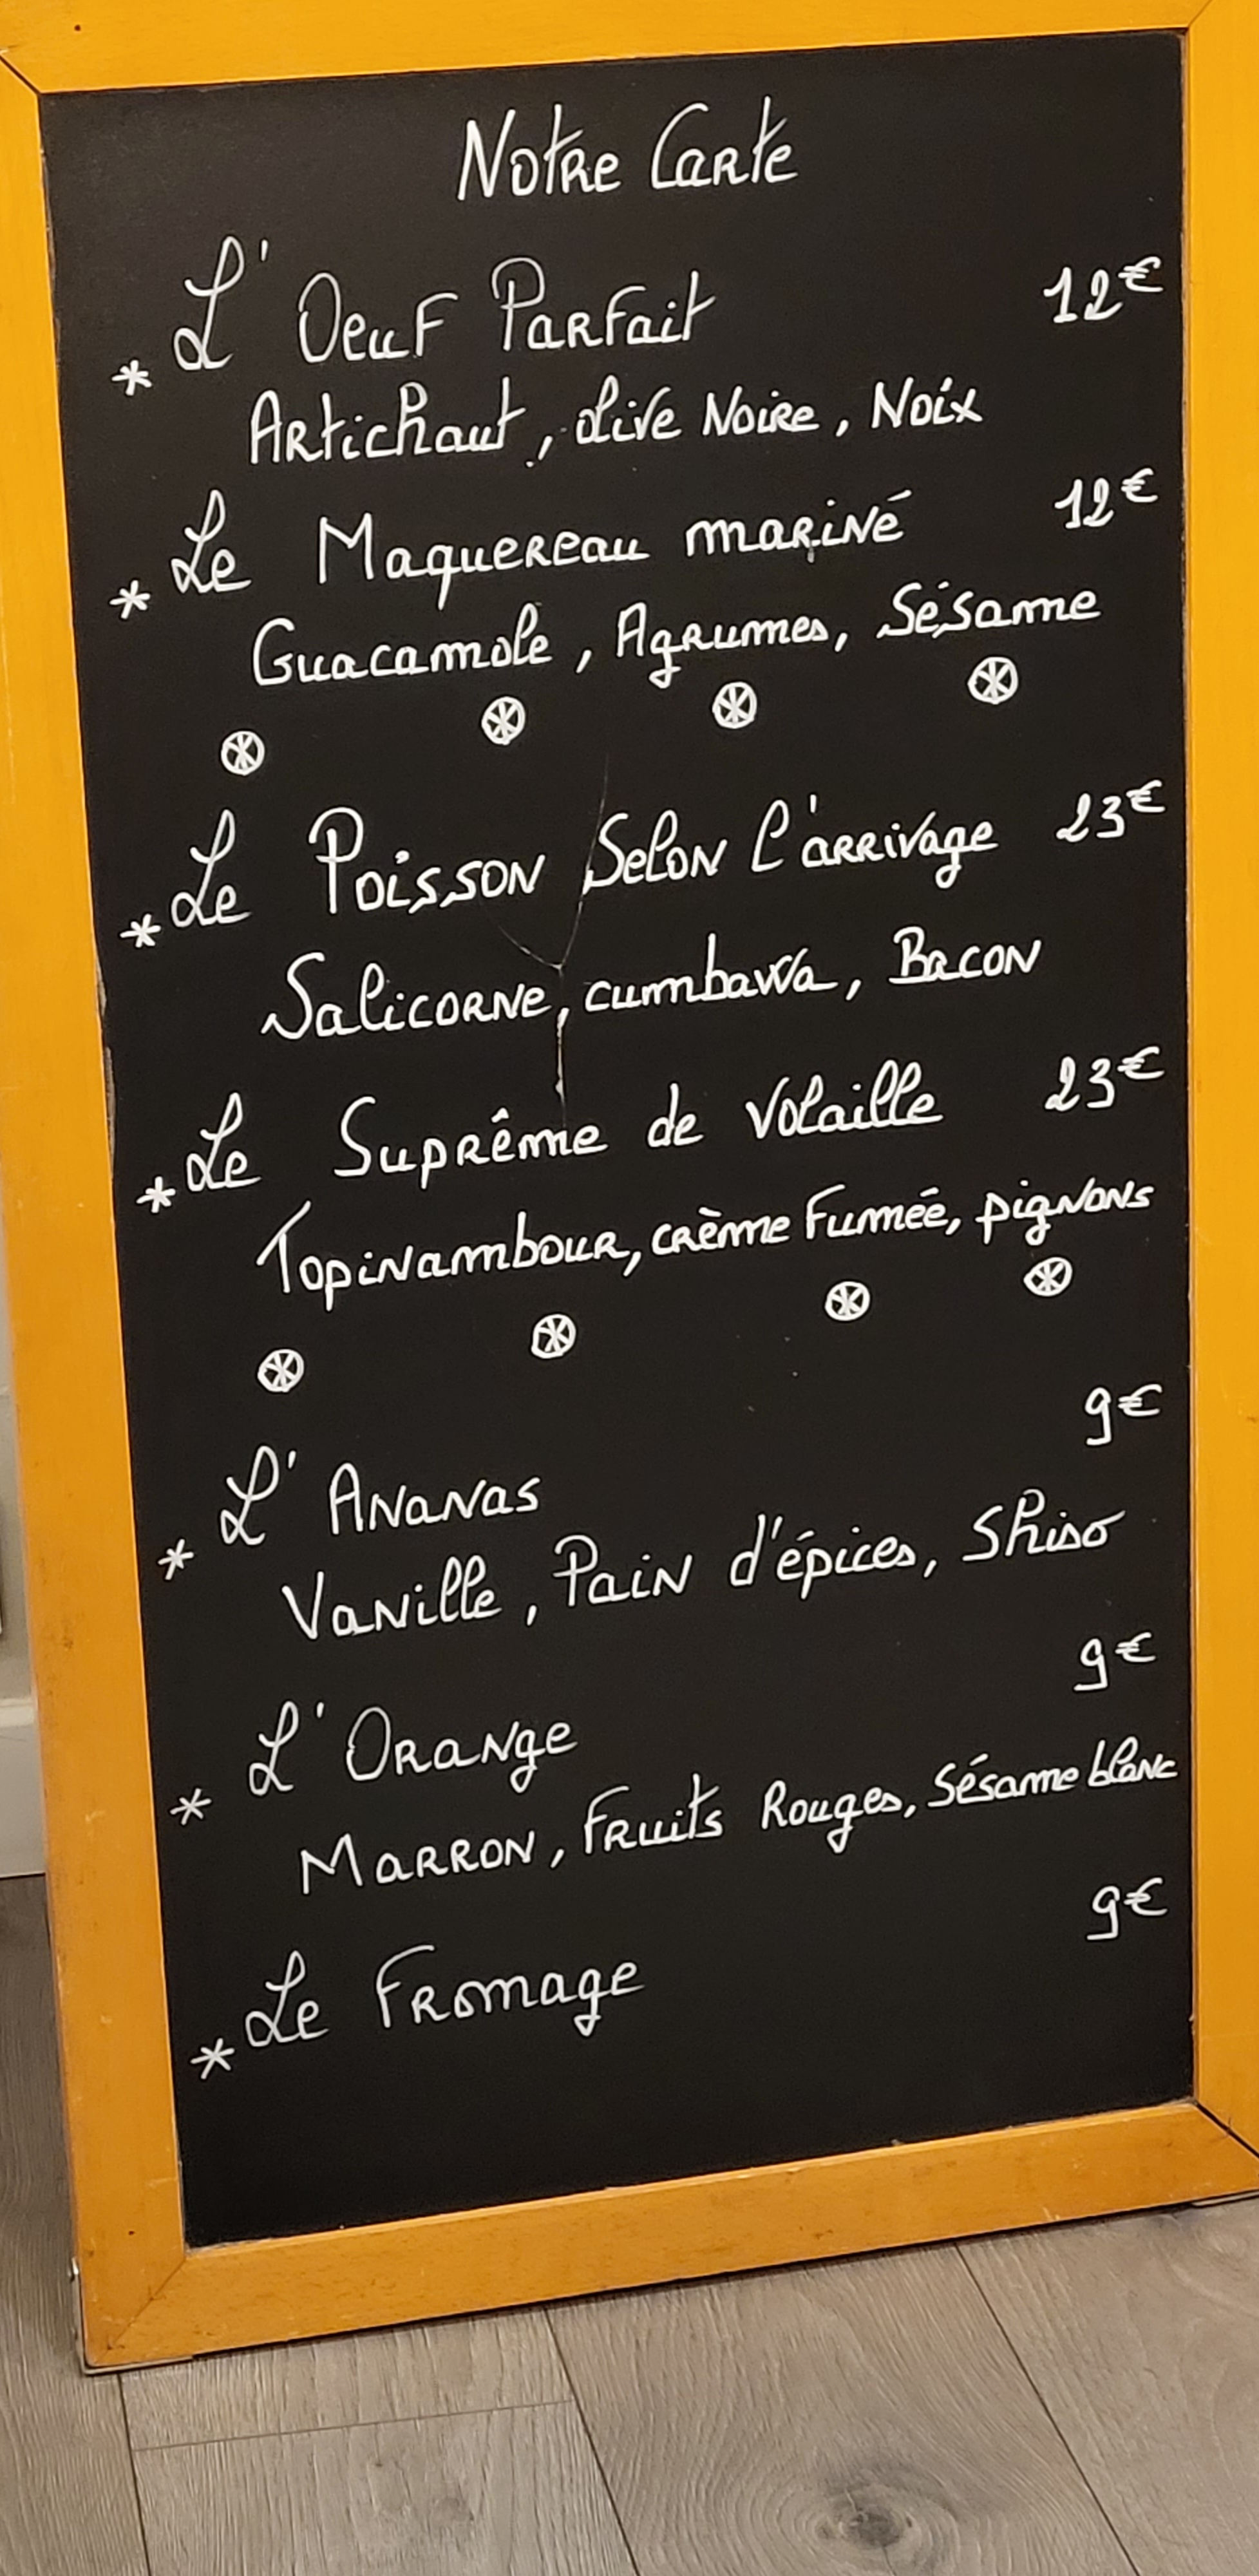 Notre Carte
* L'Oeuf Parfait 12€
Artichaut, olive Noire, Noix
* Le Maquereau mariné 12€
Guacamole, Agrumes, Sésame
* Le Poisson Selon l'arrivage 23€
Salicorne, cumbawa, Bacon
* Le Suprême de Volaille 23€
Topinambour, crème Fumée, pignons
* L'Ananas 9€
Vanille, Pain d'épices, Shiso
* L'Orange 9€
Marron, Fruits Rouges, Sésame blanc
* Le Fromage 9€